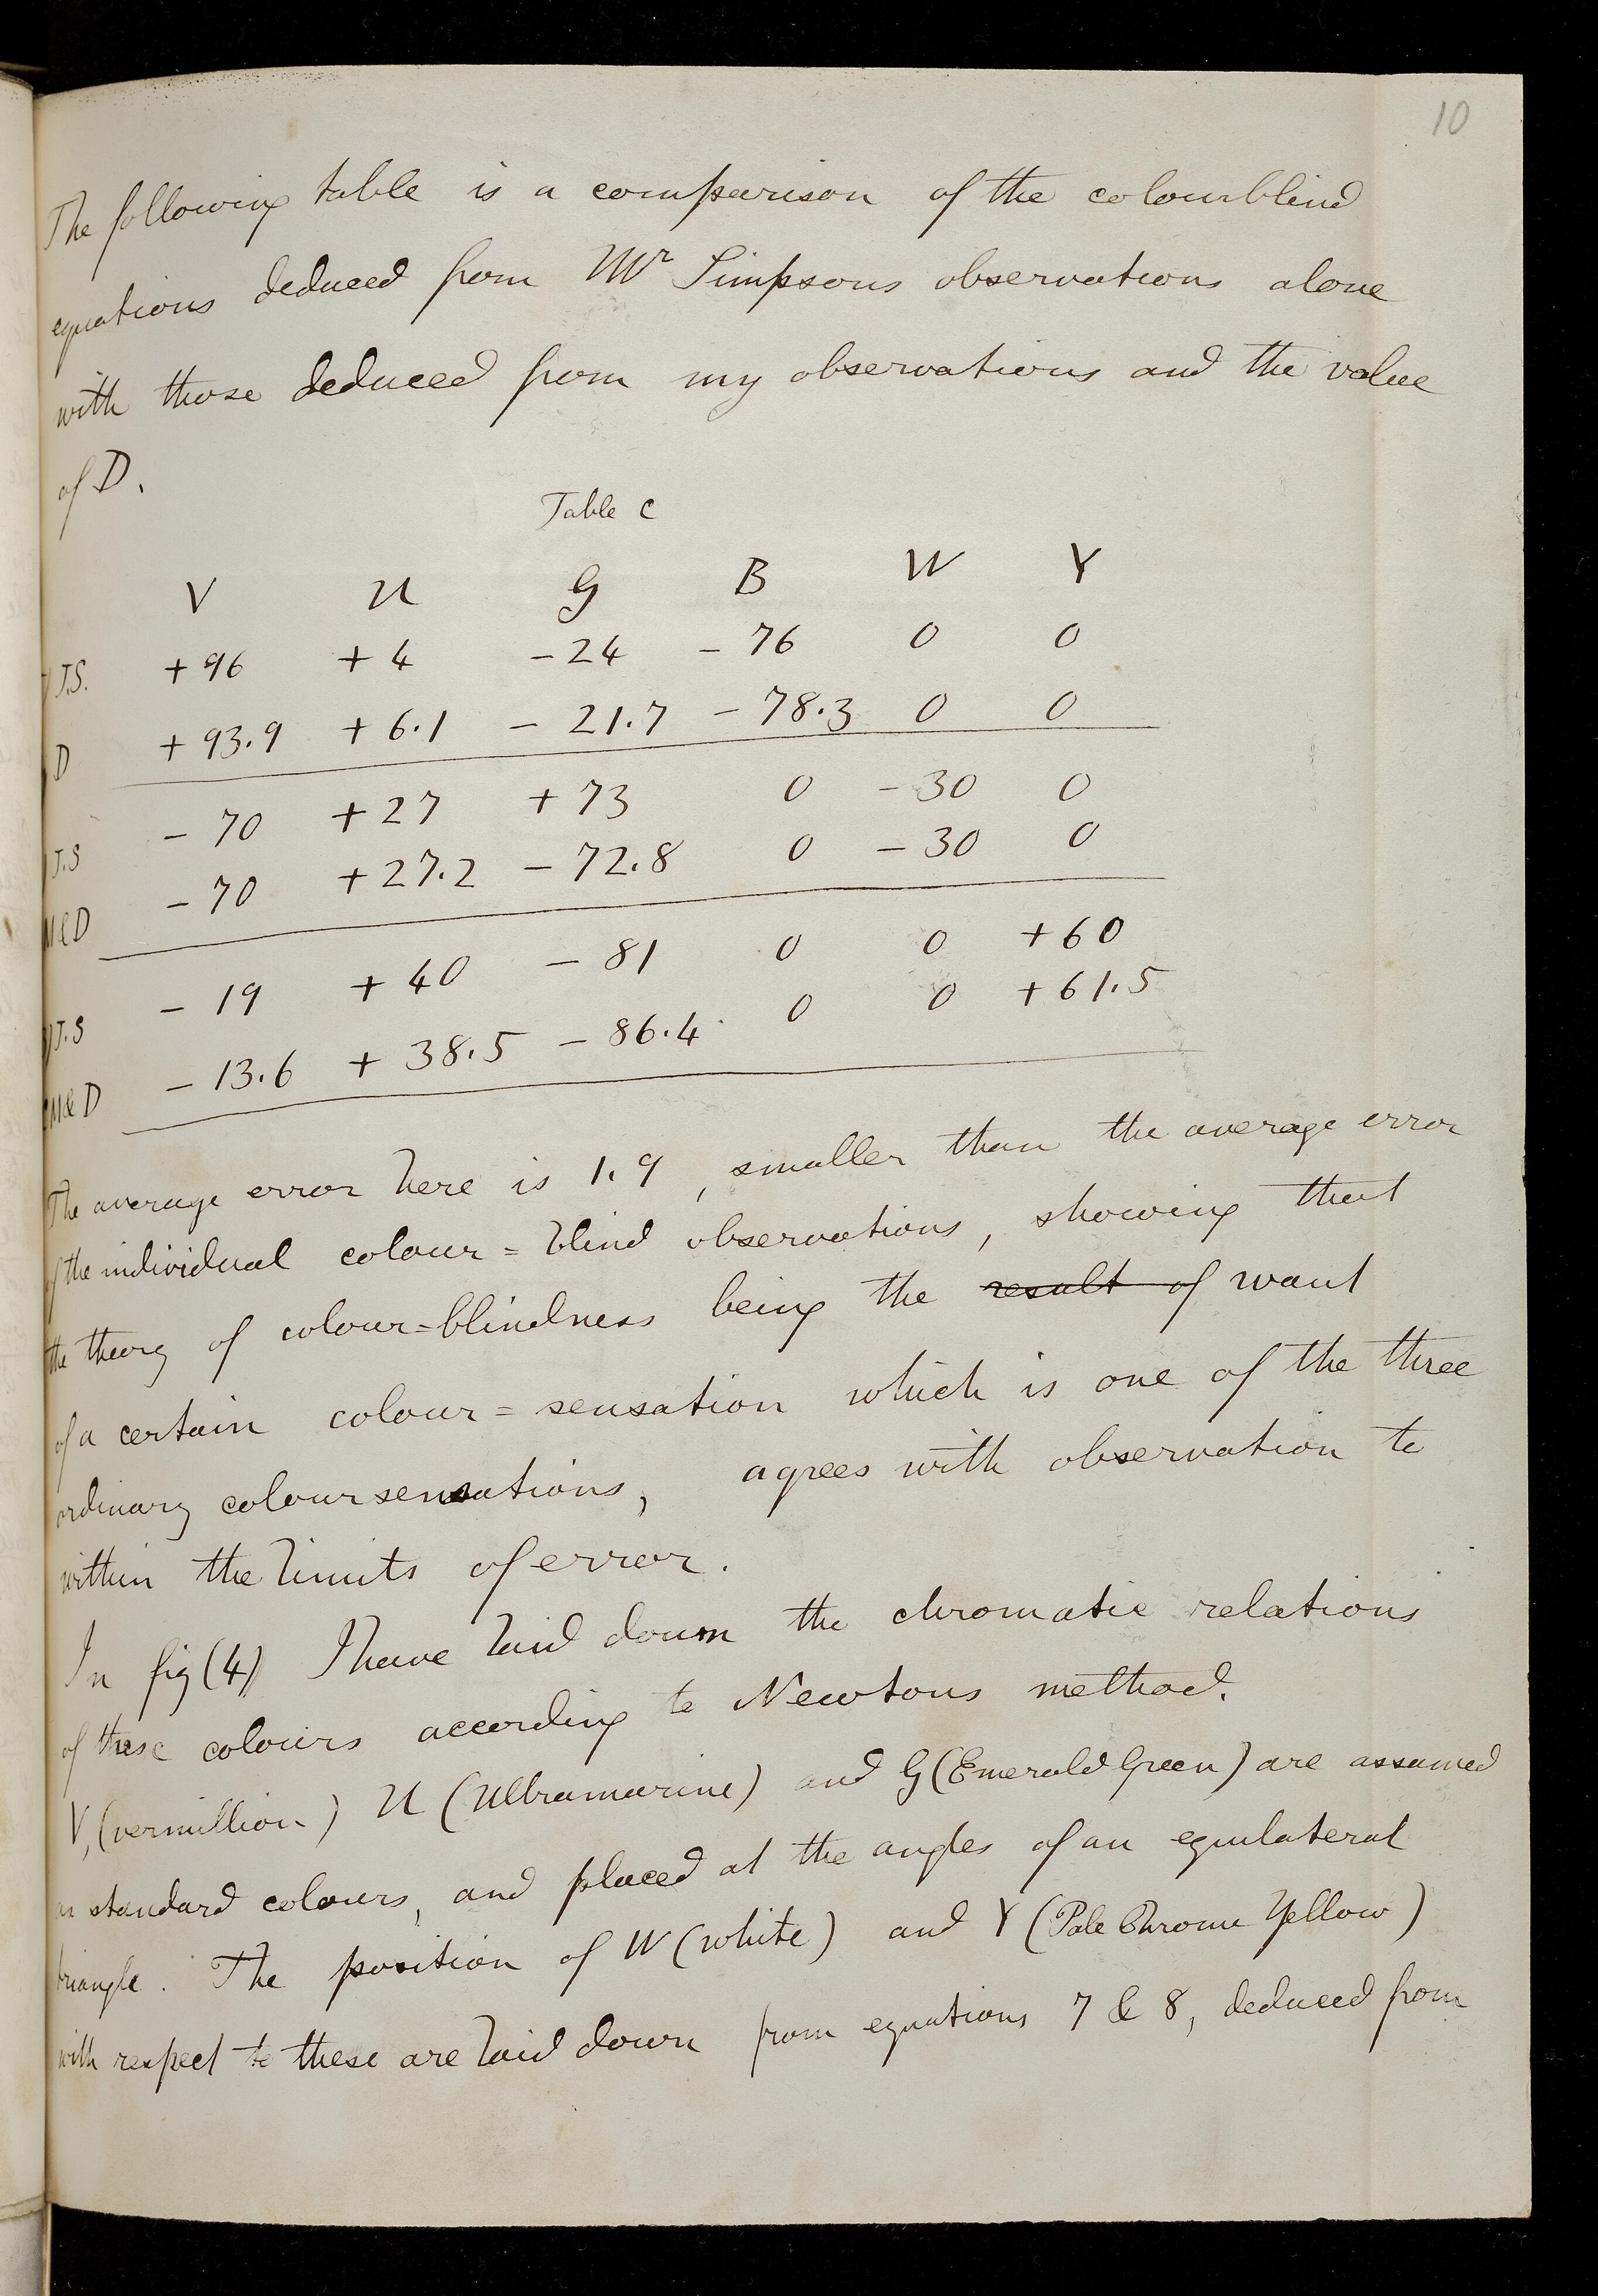 10
The following table is a comparison of the colourblind
equations deduced from Mr Simpsons observations alone
with those deduced from my observations and the value
of D.
Table C
V U G B W Y
J.S. +96 +4 -24 -76 0 0
D +93.9 +6.1 -21.7 -78.3 0 0
J.S -70 +27 +73 0 -30 0
M&D -70 +27.2 -72.8 0 -30 0
J.S -19 +40 -81 0 0 +60
M&D -13.6 +38.5 -86.4 0 0 +61.5
The average error here is 1.9, smaller than the average error
of the individual colour=blind observations, showing that
the theory of colour=blindness being the result of want
of a certain colour=sensation which is one of the three
ordinary coloursensations, agrees with observation to
within the limits of error.
In fig (4) I have laid down the chromatic relations
of these colours according to Newtons method.
V, (vermillion) U (Ultramarine) and G (Emerald Green) are assumed
as standard colours, and placed at the angles of an equilateral
triangle. The position of W (white) and Y (Pale Chrome Yellow)
with respect to these are laid down from equations 7 & 8, deduced from